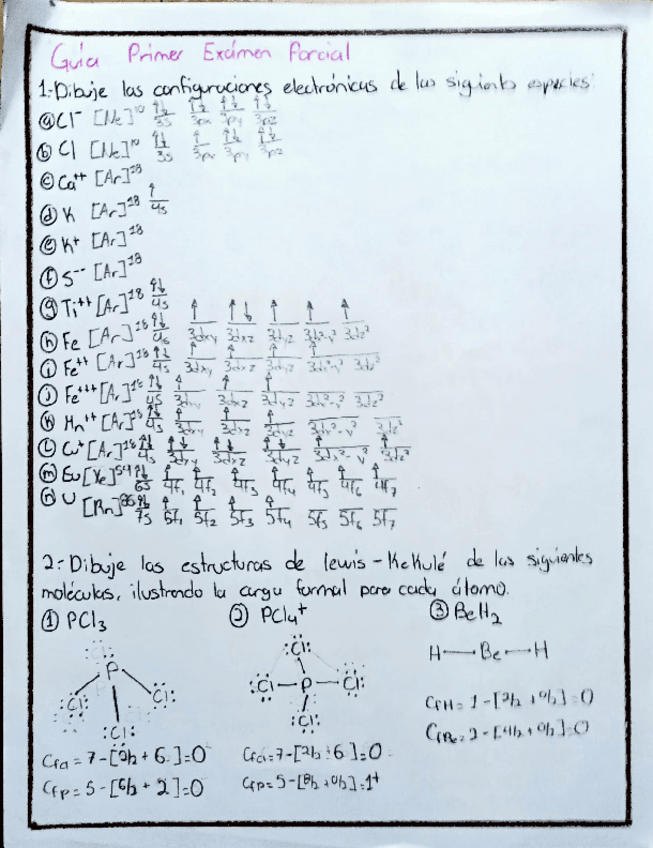 Guía Primer Exámen Parcial
1.- Dibuje las configuraciones electrónicas de las siguientes especies:
ⓐ Cl⁻ [Ne]¹⁰ ↑↓ ↑↓ ↑↓ ↑↓
3s 3px 3py 3pz
ⓑ Cl [Ne]¹⁰ ↑↓ ↑ ↑↓ ↑↓
3s 3px 3py 3pz
ⓒ Ca⁺⁺ [Ar]¹⁸
ⓓ K [Ar]¹⁸ ↑
4s
ⓔ K⁺ [Ar]¹⁸
ⓕ S⁻⁻ [Ar]¹⁸
ⓖ Ti⁺⁺ [Ar]¹⁸ ↑↓
4s
ⓗ Fe [Ar]¹⁸ ↑↓ ↑ ↑↓ ↑ ↑ ↑
4s 3dxy 3dxz 3dyz 3dx²-y² 3dz²
ⓘ Fe⁺⁺ [Ar]¹⁸ ↑↓ ↑ ↑ ↑ ↑
4s 3dxy 3dxz 3dyz 3dx²-y² 3dz²
ⓙ Fe⁺⁺⁺ [Ar]¹⁸ ↑↓ ↑ ↑ ↑
4s 3dxy 3dxz 3dyz 3dx²-y² 3dz²
ⓚ Mn⁺⁺ [Ar]¹⁸ ↑↓ ↑ ↑ ↑
4s 3dxy 3dxz 3dyz 3dx²-y² 3dz²
ⓛ Cu⁺ [Ar]¹⁸ ↑↓ ↑↓ ↑↓ ↑↓ ↑ ↑
4s 3dxy 3dxz 3dyz 3dx²-y² 3dz²
ⓜ Eu [Xe]⁵⁴ ↑↓ ↑ ↑ ↑ ↑ ↑ ↑ ↑
6s 4f₁ 4f₂ 4f₃ 4f₄ 4f₅ 4f₆ 4f₇
ⓝ U [Rn]⁸⁶ ↑↓ ↑ ↑ ↑ ↑
7s 5f₁ 5f₂ 5f₃ 5f₄ 5f₅ 5f₆ 5f₇
2.- Dibuje las estructuras de lewis - Kekulé de las siguientes
moléculas, ilustrando la carga formal para cada átomo.
① PCl₃ ② PCl₄⁺ ③ BeH₂
P
Cl Cl
Cl
Cl
Cl — P — Cl
Cl
H — Be — H
CfCl = 7 - [2/2 + 6] = 0
CfP = 5 - [6/2 + 2] = 0
CfCl = 7 - [2/2 + 6] = 0
CfP = 5 - [8/2 + 0/2] = 1⁺
CfH = 1 - [2/2 + 0/2] = 0
CfBe = 2 - [4/2 + 0/2] = 0